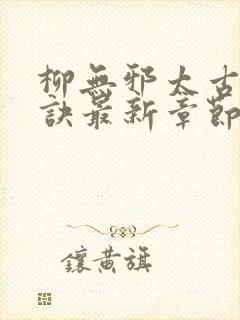 柳無邪太古
訣最新章節
鑲黃旗